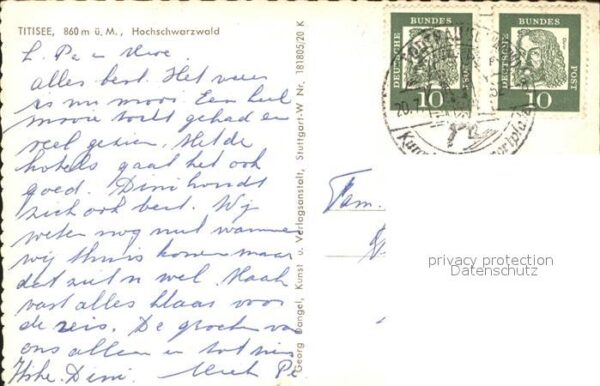 TITISEE, 860 m ü. M., Hochschwarzwald
L. Pa en
alles best. Het weer
is nu mooi. Een heel
mooie tocht gehad en
veel gezien. Met de
hotels gaat het ook
goed. Dini houdt
zich ook best. Wij
weten nog niet wanneer
wij thuis komen maar
dat ziet u wel. Maak
vast alles klaar voor
de reis. De groeten van
ons allen en tot ziens
Dini.
Georg Dangel, Kunst u. Verlagsanstalt, Stuttgart-W Nr. 181805/20 K
DEUTSCHE BUNDES POST
10
DEUTSCHE BUNDES POST
10
20.
Fam.
privacy protection
Datenschutz